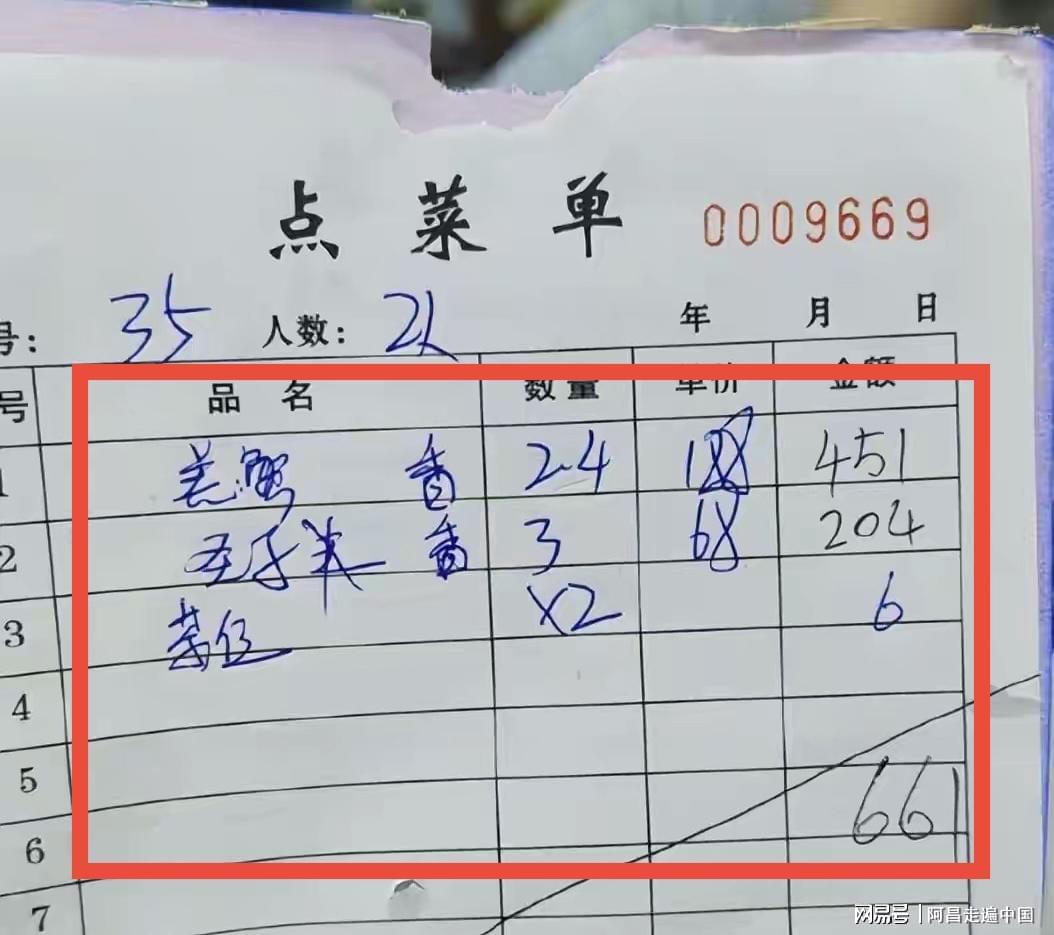 点菜单 0009669
号: 35 人数: 2人 年 月 日
号 品名 数量 单价 金额
1 羔蟹 香 2.4 188 451
2 圣子米 香 3 68 204
3 茶位 X2 6
4
5
6 661
7
网易号 | 阿昌走遍中国